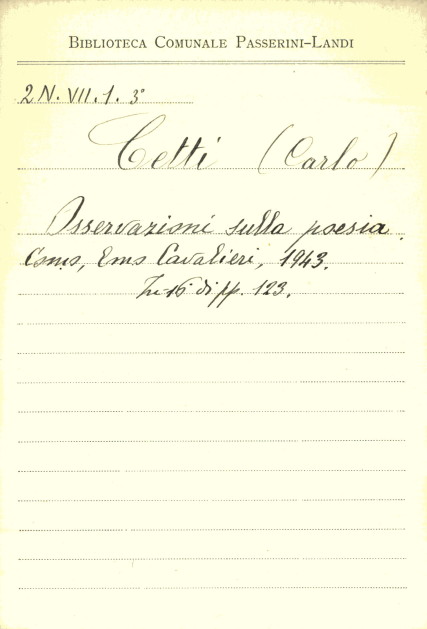 BIBLIOTECA COMUNALE PASSERINI-LANDI
2 N. VII. 1. 3°
Cetti (Carlo)
Osservazioni sulla poesia.
Como, Emo Cavalieri, 1943.
In-16 di pp. 123.